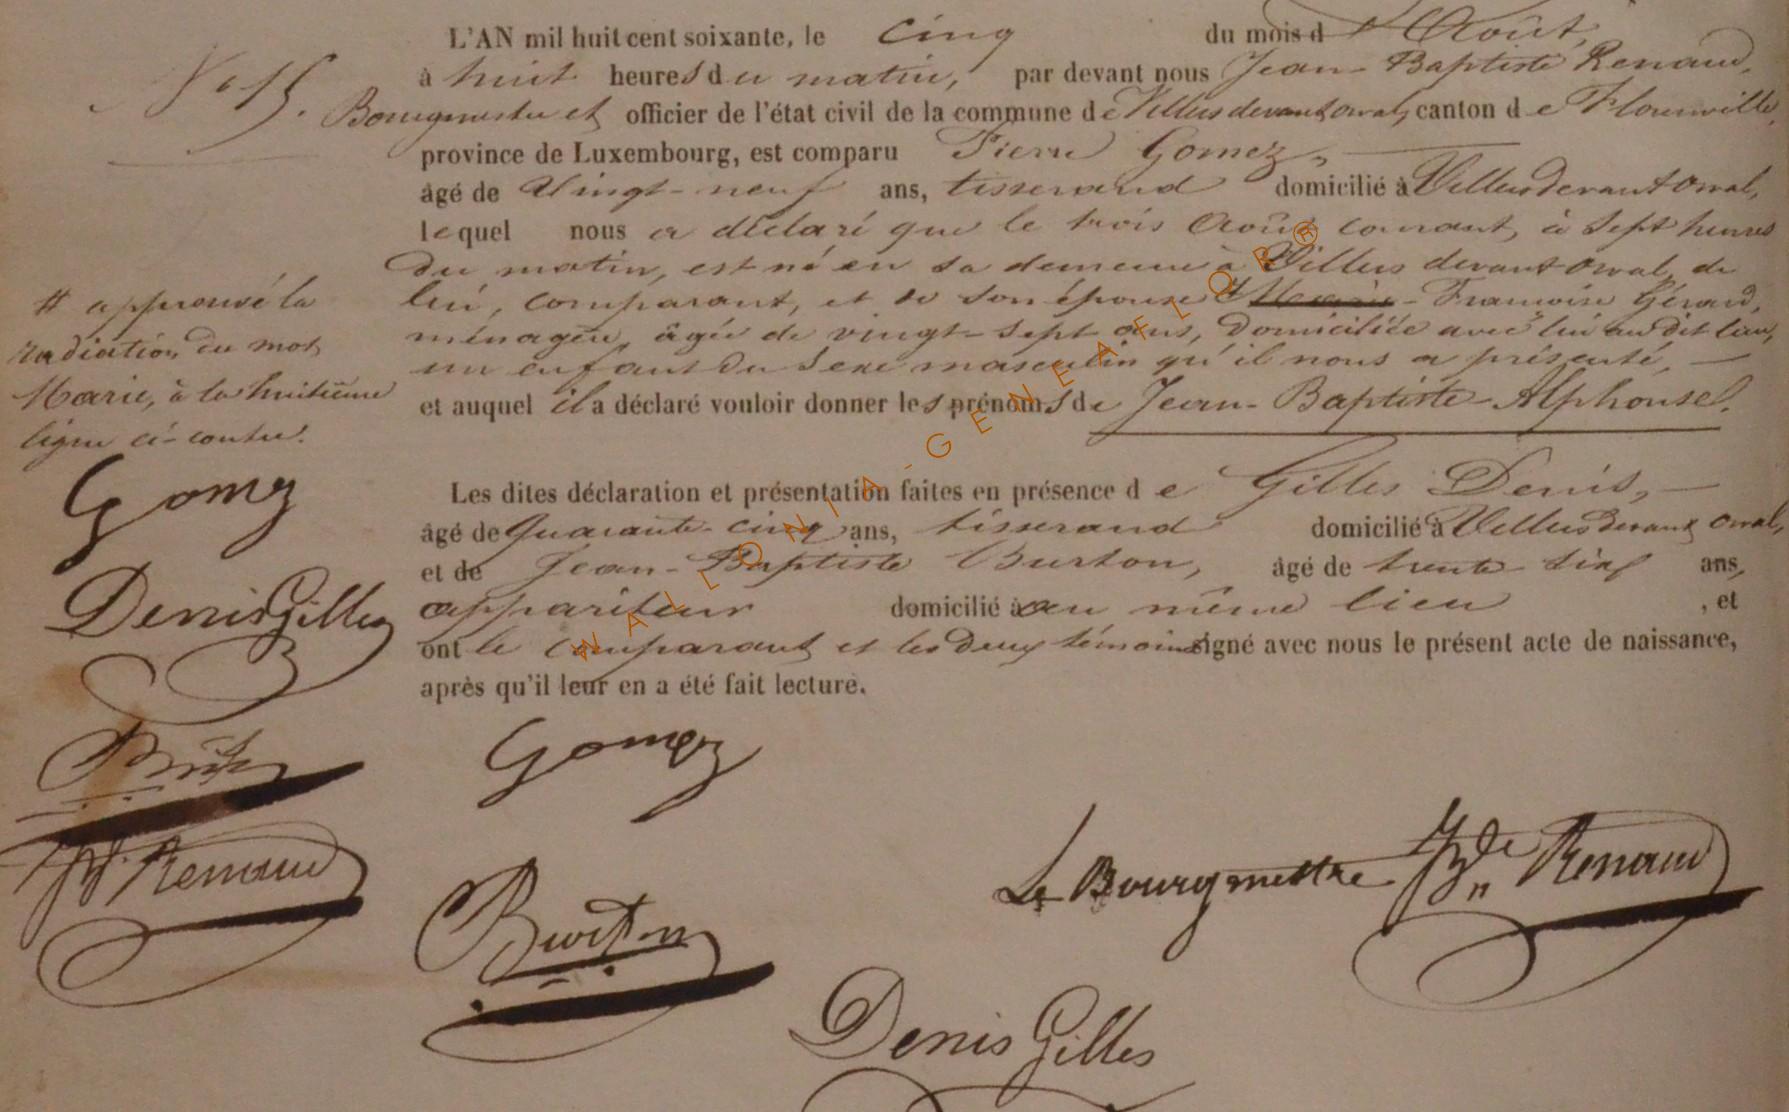 L'AN mil huit cent soixante, le cinq du mois d'Août,
N° 15.
à huit heures du matin, par devant nous Jean-Baptiste Renaud,
Bourgmestre et officier de l'état civil de la commune de Villers devant orval, canton de Florenville,
province de Luxembourg, est comparu Pierre Gomez,
âgé de Vingt-neuf ans, tisserand domicilié à Villers devant orval,
lequel nous a déclaré que le trois Août courant, à sept heures
du matin, est né en sa demeure à Villers devant orval, de
lui, comparant, et de son épouse # Marie-Francoise Gérard,
ménagère, âgée de vingt-sept ans, domiciliée avec lui au dit lieu,
un enfant du sexe masculin qu'il nous a présenté,
et auquel il a déclaré vouloir donner les prénoms de Jean-Baptiste-Alphonse.
# approuvé la
radiation du mot
Marie, à la huitième
ligne ci-contre.
Gomez
Denis Gilles
Burton
Jb. Renaud
Les dites déclaration et présentation faites en présence de Gilles Denis,
âgé de Quarante-cinq ans, tisserand domicilié à Villers devant orval,
et de Jean-Baptiste Burton, âgé de trente six ans,
appariteur domicilié à au même lieu, et
ont le comparant et les deux témoins signé avec nous le présent acte de naissance,
après qu'il leur en a été fait lecture.
Gomez
Le Bourgmestre Jn Bte Renaud
Burton
Denis Gilles
WALLONIA-GENEAFLOR®